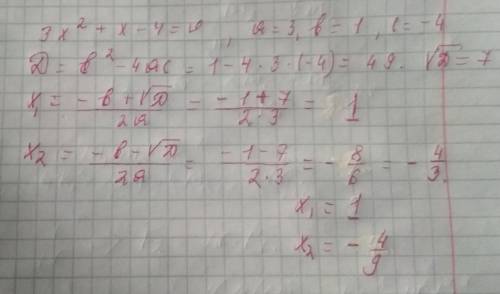 3x² + x - 4 = 0, a = 3, b = 1, c = -4
D = b² - 4ac = 1 - 4 · 3 · (-4) = 49. √D = 7
x₁ = (-b + √D)/(2a) = (-1 + 7)/(2·3) = 1
x₂ = (-b - √D)/(2a) = (-1 - 7)/(2·3) = -8/6 = -4/3.
x₁ = 1
x₂ = -4/9